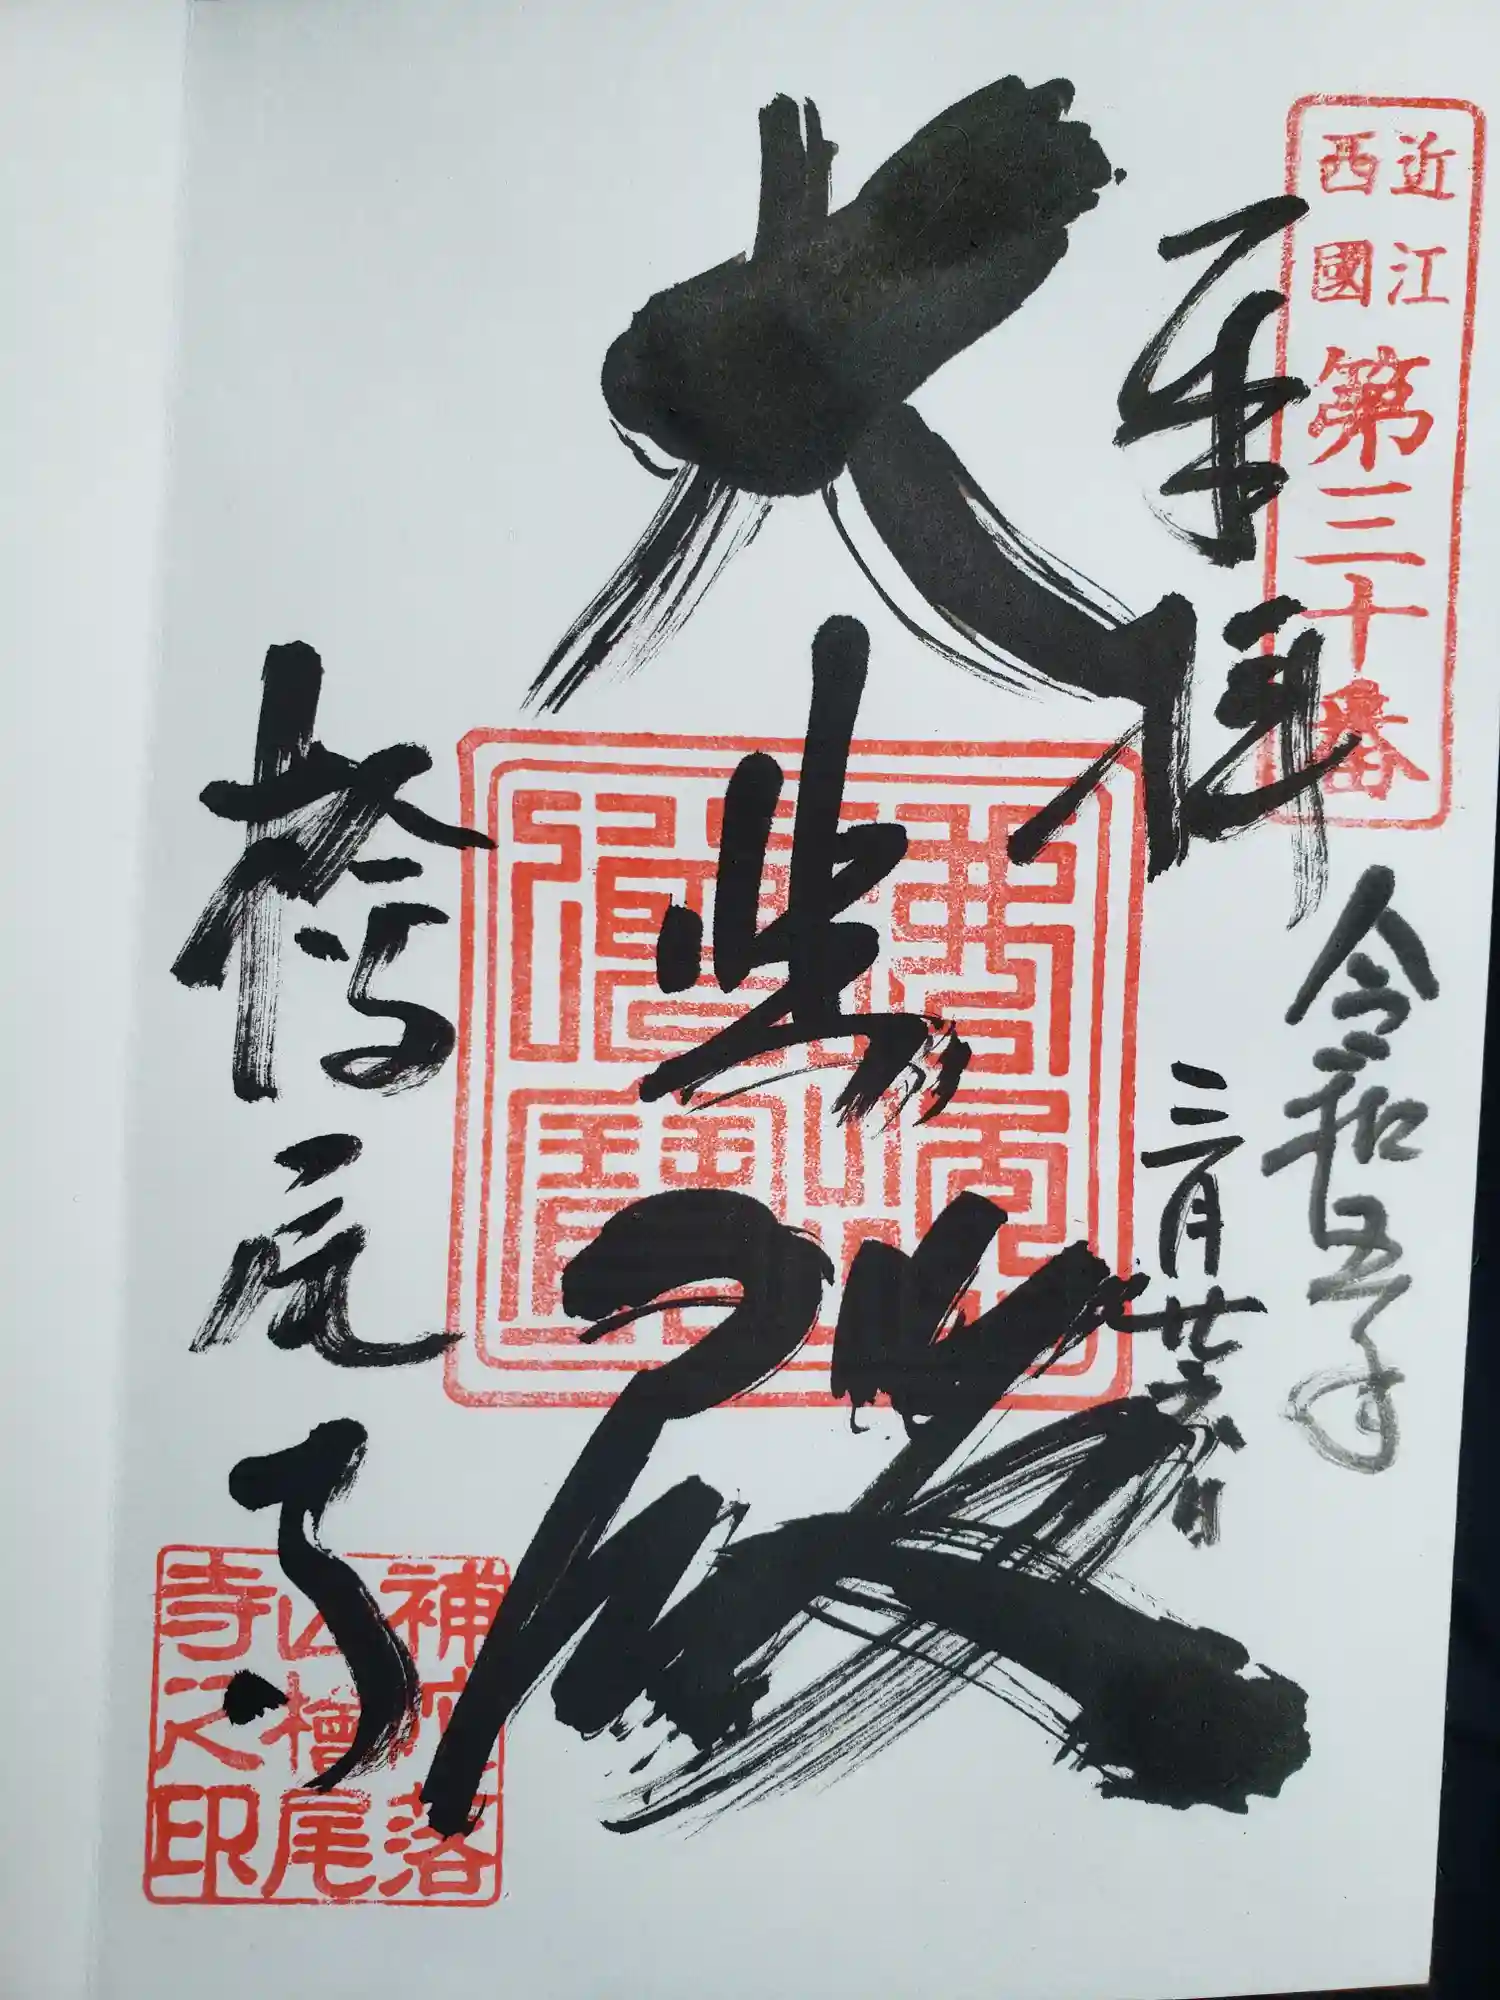 近江
西國
第三十番
奉拝
令和五年
三月廿六日
大悲殿
檜尾寺
補陀落
山檜尾
寺之印